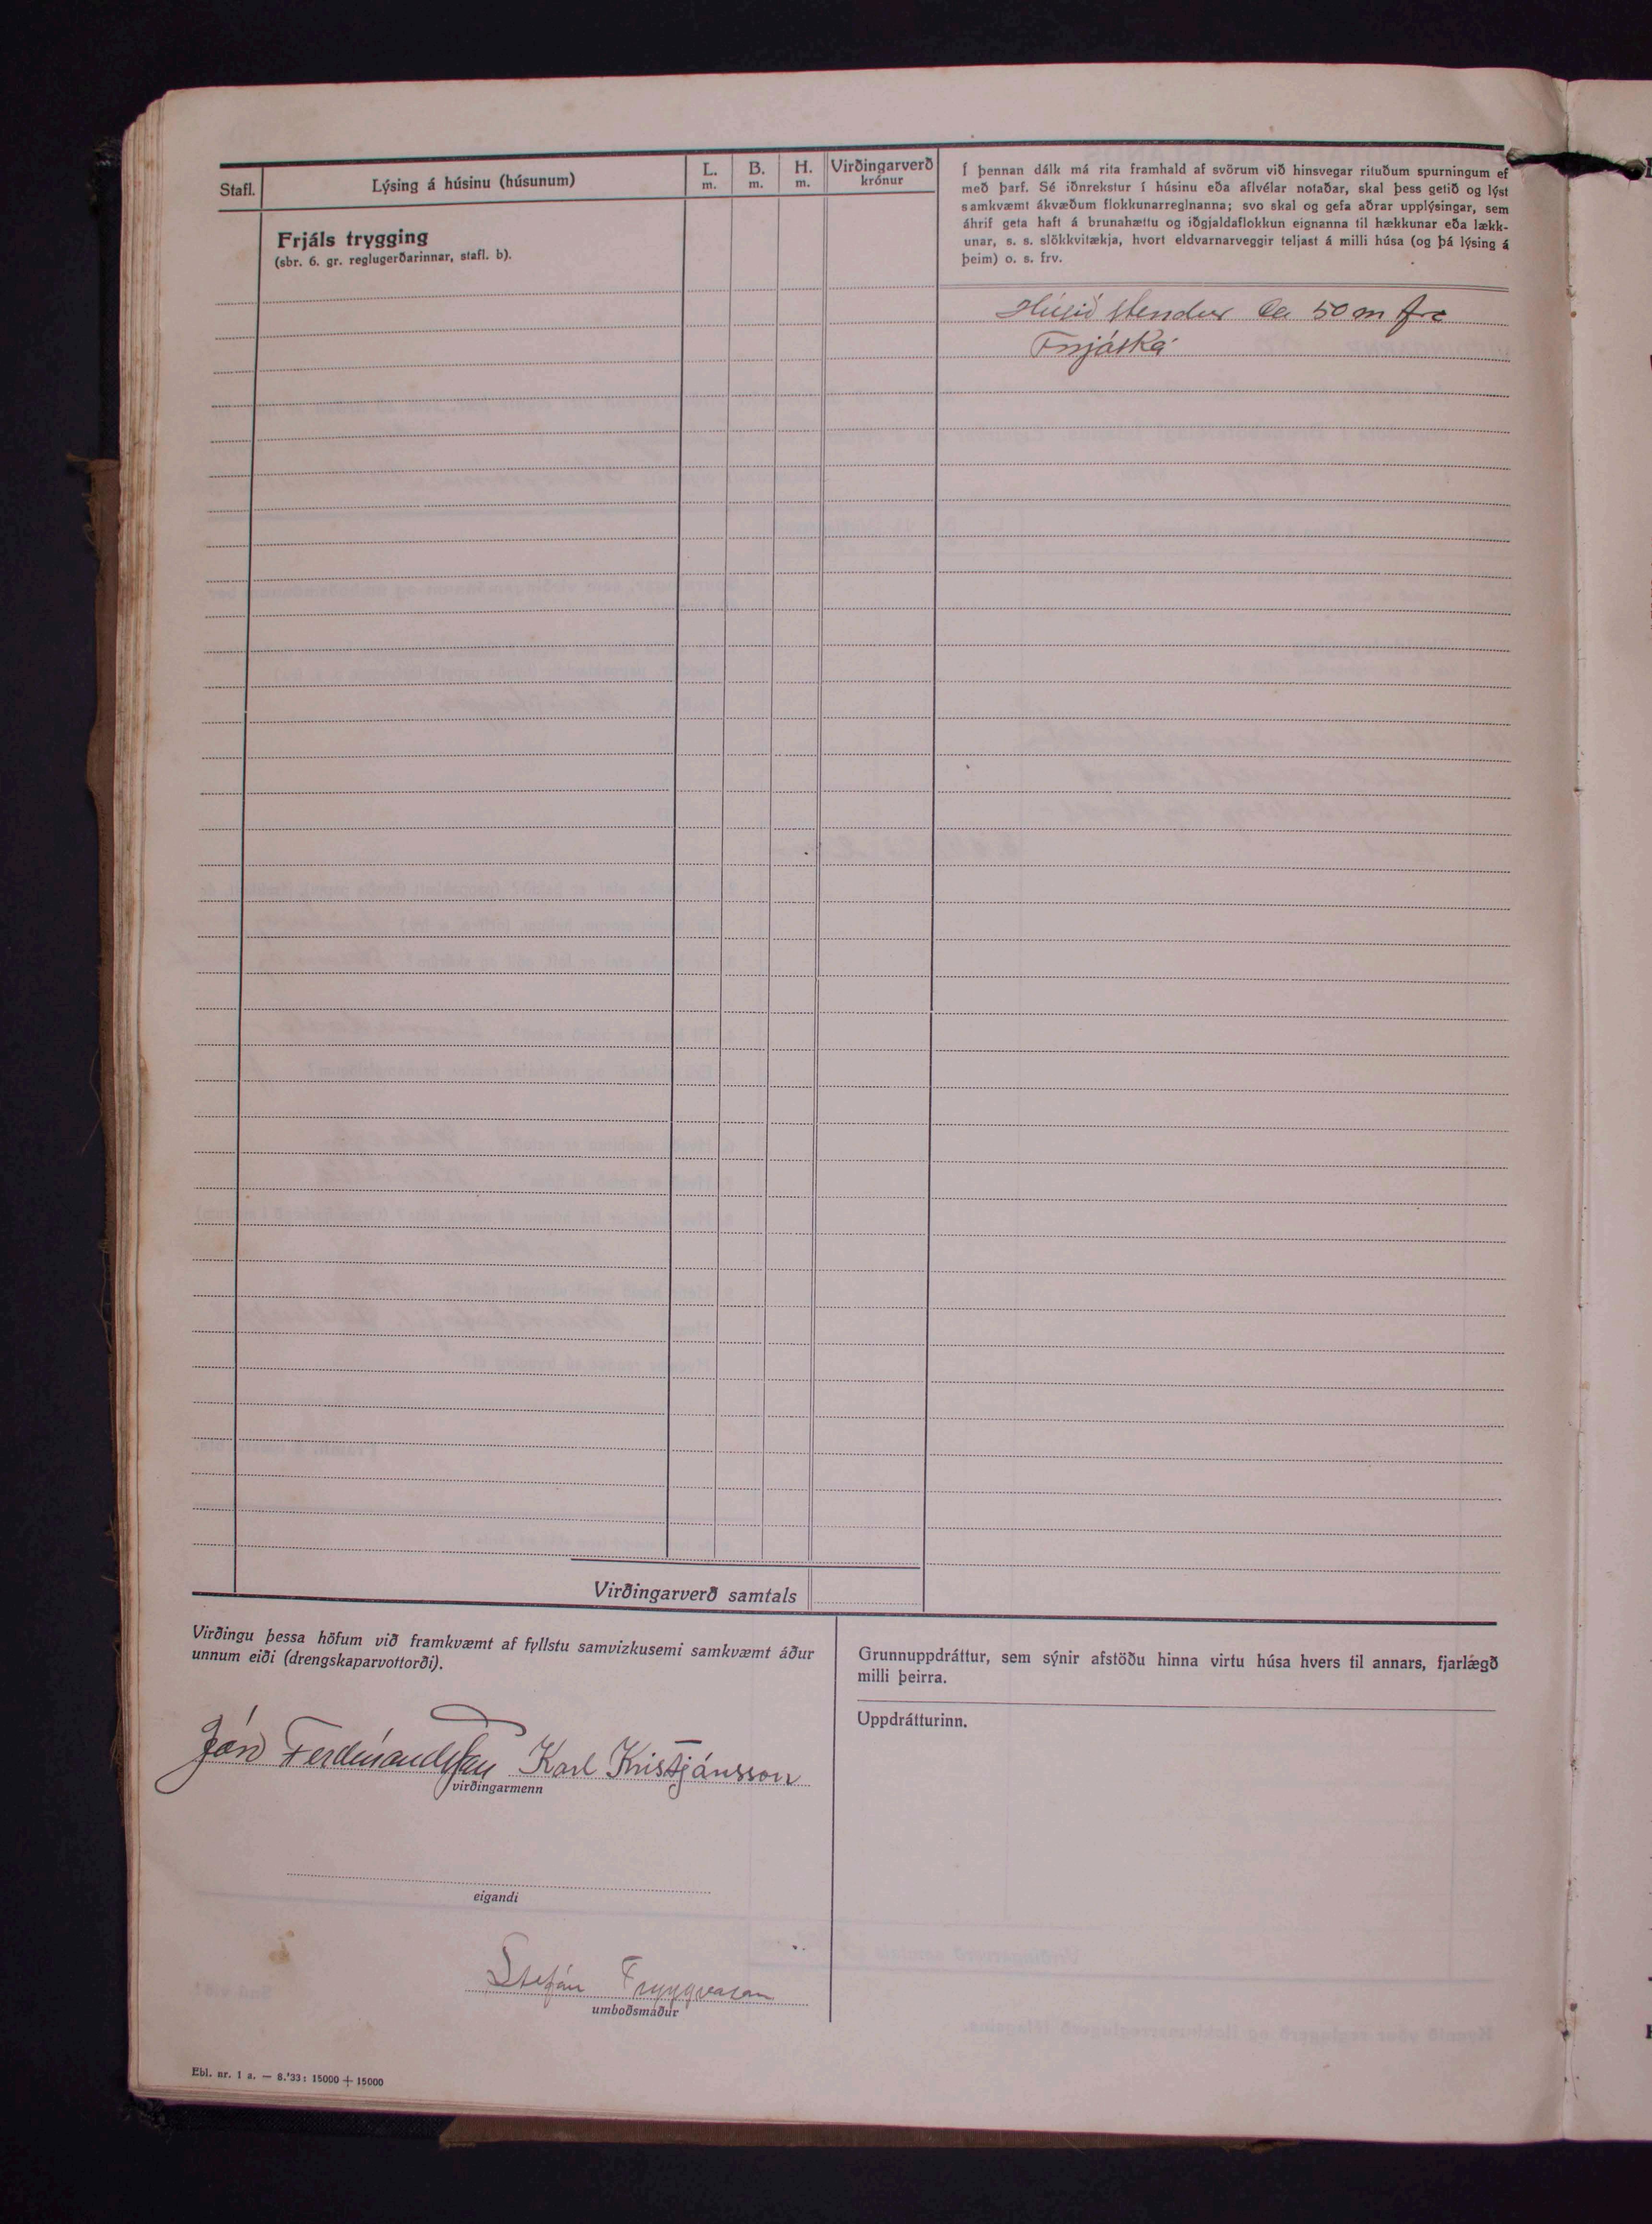 Stafl.
Lýsing á húsinu (húsunum)
L.
m.
B.
m.
H.
m.
Virðingarverð
krónur
Frjáls trygging
(sbr. 6. gr. reglugerðarinnar, stafl. b).
Í þennan dálk má rita framhald af svörum við hinsvegar rituðum spurningum ef
með þarf. Sé iðnrekstur í húsinu eða aflvélar notaðar, skal þess getið og lýst
samkvæmt ákvæðum flokkunarreglnanna; svo skal og gefa aðrar upplýsingar, sem
áhrif geta haft á brunahættu og iðgjaldaflokkun eignanna til hækkunar eða lækk-
unar, s. s. slökkvitækja, hvort eldvarnarveggir teljast á milli húsa (og þá lýsing á
þeim) o. s. frv.
Húsið stendur ca 50 m frá
Fnjóská
Virðingarverð samtals
Virðingu þessa höfum við framkvæmt af fyllstu samvizkusemi samkvæmt áður
unnum eiði (drengskaparvottorði).
Jón Ferdinandsson Karl Kristjánsson
virðingarmenn
eigandi
Stefán Tryggvason
umboðsmaður
Grunnuppdráttur, sem sýnir afstöðu hinna virtu húsa hvers til annars, fjarlægð
milli þeirra.
Uppdrátturinn.
Ebl. nr. 1 a. — 8.'33: 15000 + 15000